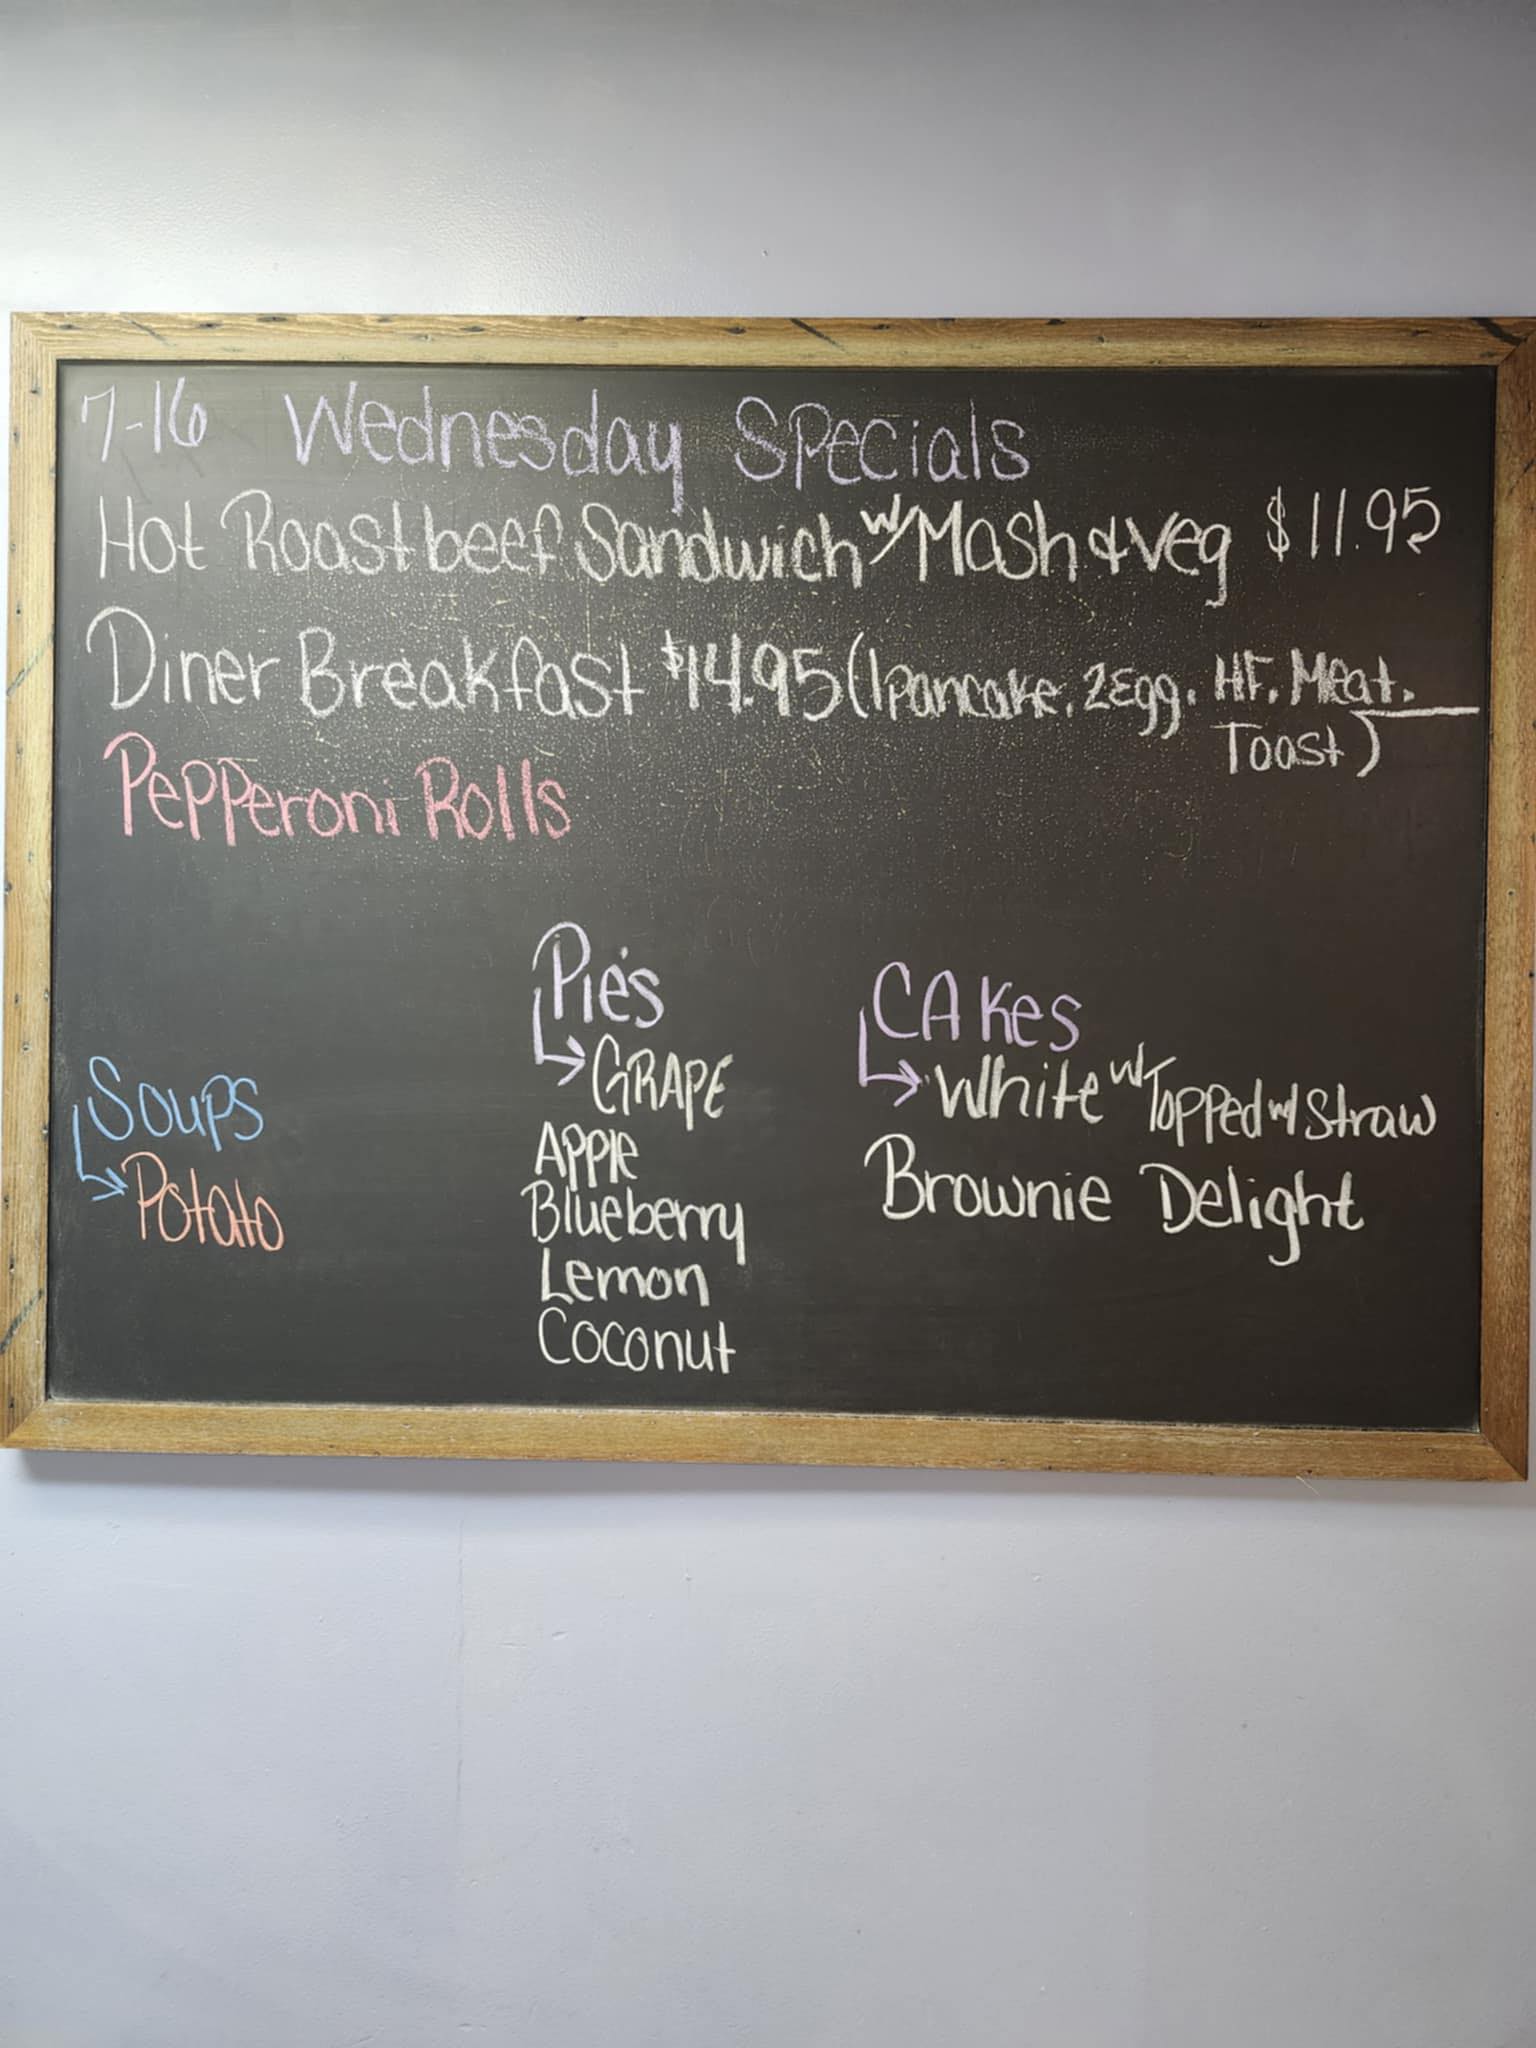 7-16 Wednesday Specials
Hot Roastbeef Sandwich w/ Mash & Veg $11.95
Diner Breakfast $14.95 (1 pancake, 2 Egg, HF, Meat,
Toast)
Pepperoni Rolls
Pie's
GRAPE
Apple
Blueberry
Lemon
Coconut
CAkes
White w/ Topped w/ Straw
Brownie Delight
Soups
Potato